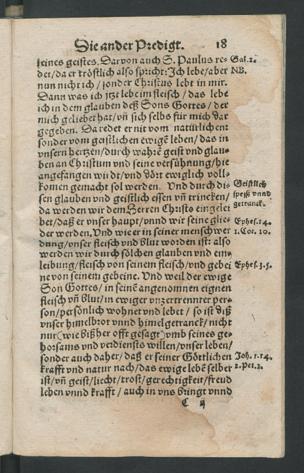 Die ander Predigt. 18
seines geistes. Darvon auch S. Paulus re=
det/da er tröstlich also spricht: Ich lebe/aber
nun nicht ich / sonder Christus lebt in mir.
Dann was ich itze lebe im fleisch / das lebe
ich in dem glauben deß Sons Gottes / der
mich geliebet hat/vn̄ sich selbs für mich dar
gegeben. Da redet er nit vom natürlichem
sonder vom geistlichen ewigē leben/das in
vnsern hertzen/durch wahrē geist vnd glau=
ben an Christum vnd seine versühnung/hie
angefangen wirdt/vnd dort ewiglich voll=
komen gemacht sol werden. Vnd durch di=
sen glauben vnd geistlich essen vn̄ trincken/
da werden wir dem Herren Christo eingelei
bet/daß er vnser haupt/vnnd wir seine glie=
der werden, Vnd wie er in seiner menschwer
dung/vnser fleisch vnd Blut worden ist: also
werden wir durch sölchen glauben vnd ein=
leibung/fleisch von seinem fleisch/vnd gebei
ne von seinem gebeine. Vnd weil der ewige
Son Gottes / in seinē angenommen eignen
fleisch vn̄ Blut/in ewiger vnzertrennter per=
son/persönlich wohnet vnd lebet / so ist diß
vnser himelbrot vnnd himelgetranck/ nicht
nur (wie bißher offt gesagt) vmb seines ge=
horsams vnd verdiensts willen/vnser leben/
sonder auch daher/ daß er seiner Göttlichen
krafft vnd natur nach/das ewige lebē selber
ist/vn̄ geist/liecht/trost/gerechtigkeit/freud
leben vnnd krafft / auch in vns bringt vnnd
C ij
Gal. 2.
NB.
Geistlich
speiß vnnd
getranck.
Ephes. 1.4.
1. Cor. 10.
Ephes. 3.5.
Joh. 1.14.
2. Pet. 1.